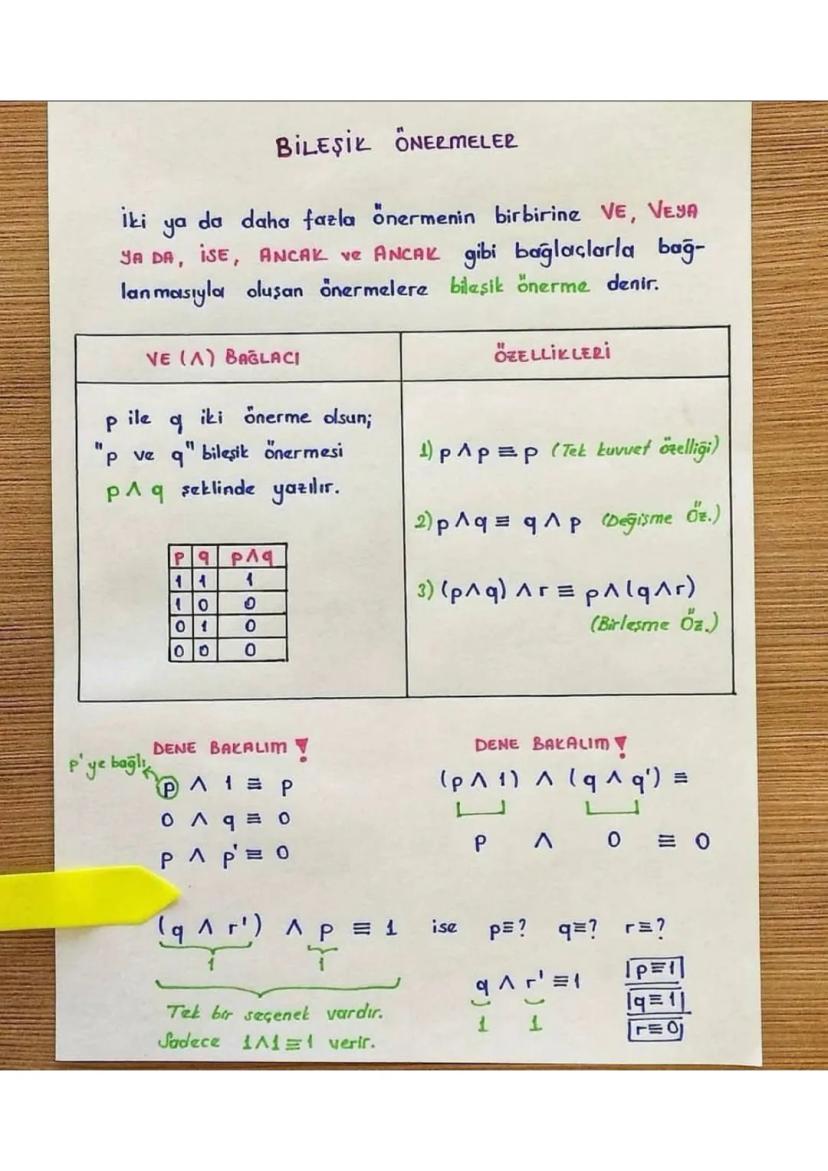 BİLEŞİK ÖNERMELER
İki ya da daha fazla önermenin birbirine VE, VEYA
YA DA, İSE, ANCAK ve ANCAK gibi bağlaçlarla bağ-
lanmasıyla oluşan önermelere bileşik önerme denir.
VE (Λ) BAĞLACI
p ile q iki önerme olsun;
"p ve q" bileşik önermesi
p Λ q şeklinde yazılır.
p q pΛq
1 1 1
1 0 0
0 1 0
0 0 0
ÖZELLİKLERİ
1) p Λ p ≡ p (Tek kuvvet özelliği)
2) p Λ q ≡ q Λ p (Değişme Öz.)
3) (pΛq) Λ r ≡ pΛ(qΛr)
(Birleşme Öz.)
DENE BAKALIM !
p'ye bağlı
p Λ 1 ≡ p
0 Λ q ≡ 0
p Λ p' ≡ 0
DENE BAKALIM !
(p Λ 1) Λ (q Λ q') ≡
p Λ 0 ≡ 0
(q Λ r') Λ p ≡ 1 ise p≡? q≡? r≡?
1 1
Tek bir seçenek vardır.
Sadece 1Λ1≡1 verir.
q Λ r' ≡1
1 1
p≡1
q≡1
r≡0